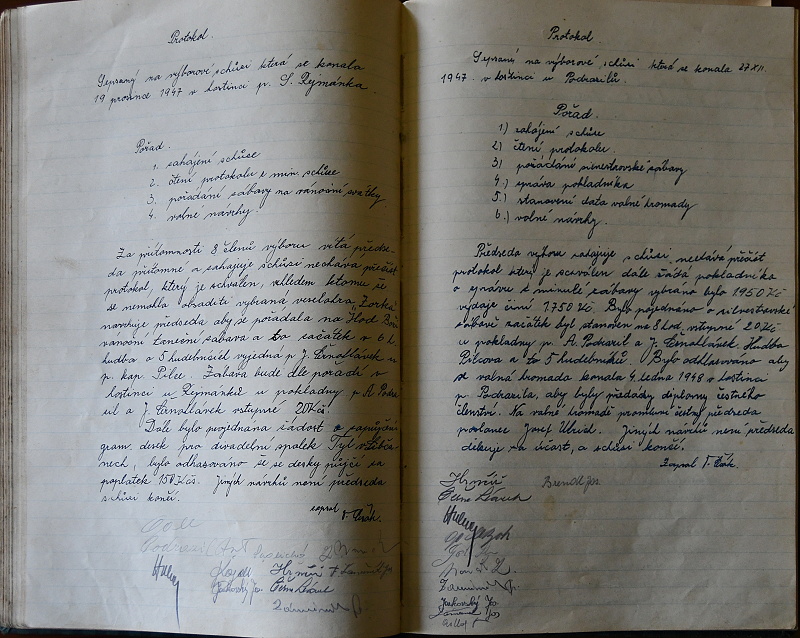 Protokol.
Sepsaný na výborové schůsi která se konala
19 prosince 1947 v hostinci p. S. Rejmánka.
Pořad.
1. sahájení schůse
2. čtení protokolu s min. schůse
3. pořádání sábavy na vánoční svátky
4. volné návrhy.
Za přítomnosti 8 členů výboru vítá předse-
da přítomné a sahajuje schůsi nechává přečíst
protokol, který je schválen, vzhledem ktomu že
se nemohla obsaditi vybraná veselohra „Zorka"
navrhuje předseda aby se pořádala na Hod Boží
vánoční taneční sábava a to sačátek v 6 h.
hudba o 5 hudebníků vyjedná p J. Černohlánek u
p. kap. Pilce. Zábava bude dle pořadí v
hostinci u Rejmánků u pokladny p A. Podra-
sil a J. Černohlánek vstupné 20Kčs.
Dále bylo projednána žádost o sapůjčení
gram. desek pro divadelní spolek Tyl
nech, bylo odhlasováno že se desky půjčí sa
poplatek 150Kčs. Jiných návrhů není předseda
schůsi končí.
sapsal
Podrasil
Protokol
Sepsaný na výborové schůsi která se konala 27 XII.
1947. v hostinci u Podrazilů.
Pořad.
1.) sahájení schůse
2.) čtení protokolu.
3.) pořádání silvestrovské sábavy
4.) správa pokladníka
5.) stanovení data valné hromady
6.) volné návrhy.
Předseda výboru sahajuje schůsi nechává přečíst
protokol který je schválen dále žádá pokladníka
o správu s minulé sábavy vybráno bylo 1950 Kč
výdaje činí 1750 Kč. Bylo pojednáno o silvestrovské
sábavě sačátek byl stanoven na 8 hod. vstupné 20 Kč
u pokladny p. A. Podrazil a J. Černohlánek. Hudba
Pilcova a to 5 hudebníků. Bylo odhlasováno aby
se valná hromada konala 4. ledna 1948 v hostinci
p. Podrazila, aby byly předány diplomy čestného
členství. Na valné hromadě promluví čestný předseda
poslanec Josef Ulrich. Jiných návrhů není předseda
děkuje za účast, a schůsi končí.
Zapsal